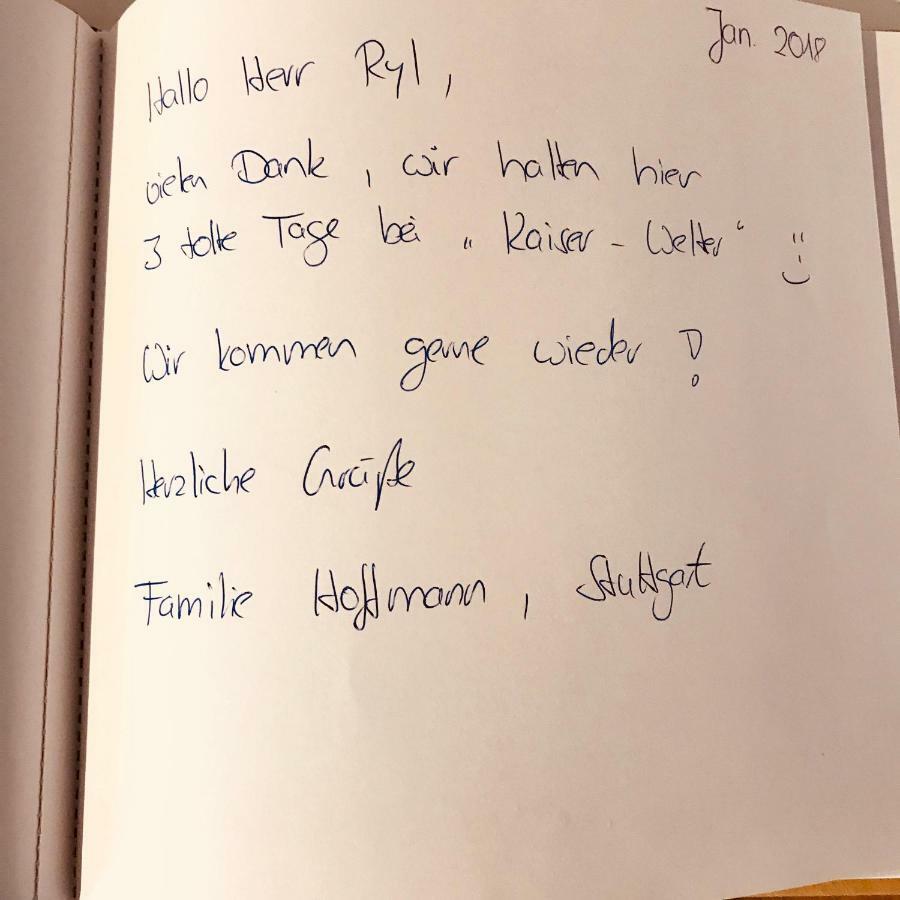 Jan. 2018
Hallo Herr Ryl,
vielen Dank, wir hatten hier
3 tolle Tage bei „Kaiser-Wetter“ :)
Wir kommen gerne wieder!
Herzliche Grüße
Familie Hoffmann, Stuttgart